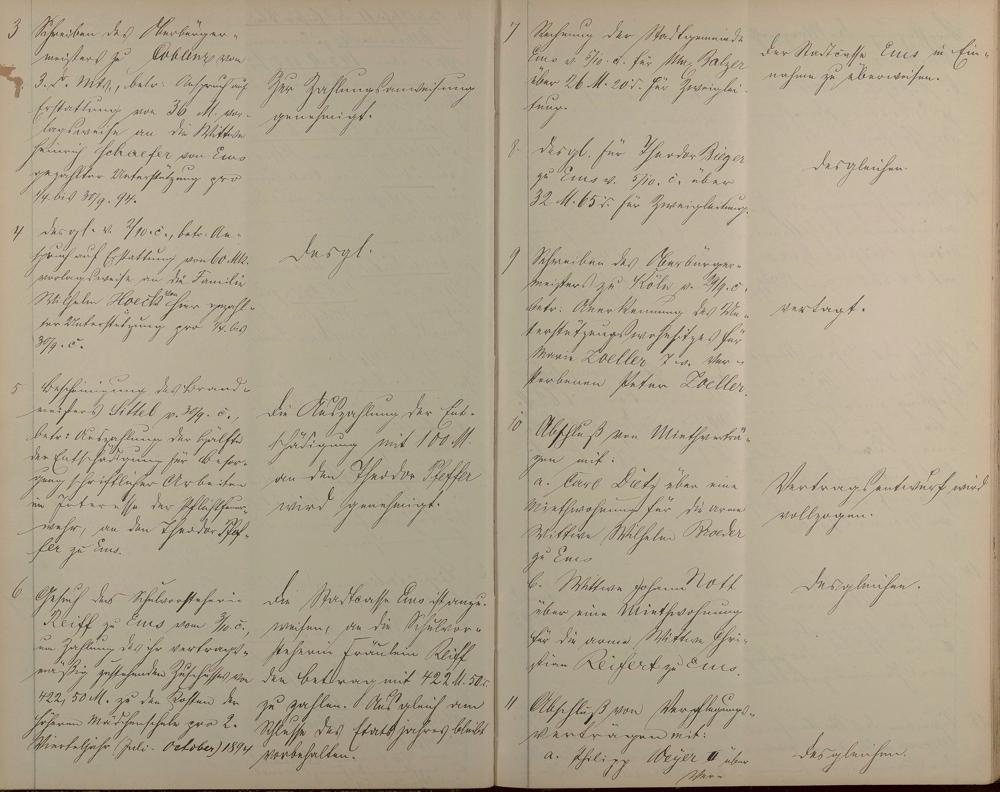 3 Schreiben des Oberbürger-
meisters zu Coblenz vom
3. d. Mts., betr. Anspruch auf
Erstattung von 36 M. vor-
lagsweise an die Wittwe
Heinrich Schaefer von Ems
gezahlter Unterstützung pro
1/4. bis 30/9. 94.
Zur Zahlungsanweisung
genehmigt.
4 desgl. v. 2/10. c., betr. An-
spruch auf Erstattung von 60 Mk.
vorlagsweise an die Familie
Wilhelm Hoeck von hier gezahl-
ter Unterstützung pro 1/4. bis
30/9. c.
desgl.
5 Bescheinigung des Brand-
meisters Sittel v. 30/9. c.,
betr: Auszahlung der Hälfte
der Entschädigung für Besor-
gung schriftlicher Arbeiten
im Interesse der Pflichtfeuer-
wehr, an den Theodor Pfef-
fer zu Ems.
Die Auszahlung der Ent-
schädigung mit 100 M.
an den Theodor Pfeffer
wird genehmigt.
6 Gesuch der Schulvorsteherin
Reiff zu Ems vom 2/10. c.,
um Zahlung des ihr vertrags-
mäßig zustehenden Zuschusses von
422,50 M. zu den Kosten der
höheren Mädchenschule pro 2.
Vierteljahr (Juli - October) 1894
Die Stadtcasse Ems ist anzu-
weisen, an die Schulvor-
steherin Fräulein Reiff
den Betrag mit 422 M. 50 d.
zu zahlen. Ausgleich am
Schlusse des Etatsjahres bleibt
vorbehalten.
7 Rechnung der Stadtgemeinde
Ems v. 5/10. c. für Balzer
über 26 M. 20 d. für Zweiglei-
tung.
Der Stadtcasse Ems in Ein-
nahme zu überweisen.
8 desgl. für Theodor Bieger
zu Ems v. 5/10. c. über
32 M. 65 d. für Zweigleitung.
desgleichen.
9 Schreiben des Oberbürger-
meisters zu Köln v. 29/9. c.
betr. Anerkennung des Un-
terstützungswohnsitzes für
Marie Zoeller Ww. Ver-
storbenen Peter Zoeller.
vertagt.
10 Abschluß von Miethverträ-
gen mit:
a. Carl Dietz über eine
Miethwohnung für die arme
Wittwe Wilhelm Broeder
zu Ems
Vertragsentwurf wird
vollzogen.
b. Wittwe Johann Nott
über eine Miethwohnung
für die arme Wittwe Chri-
stian Reifert zu Ems.
desgleichen.
11 Abschluß von Verpflegungs-
verträgen mit:
a. Philipp Weyer II über
Ver-
desgleichen.